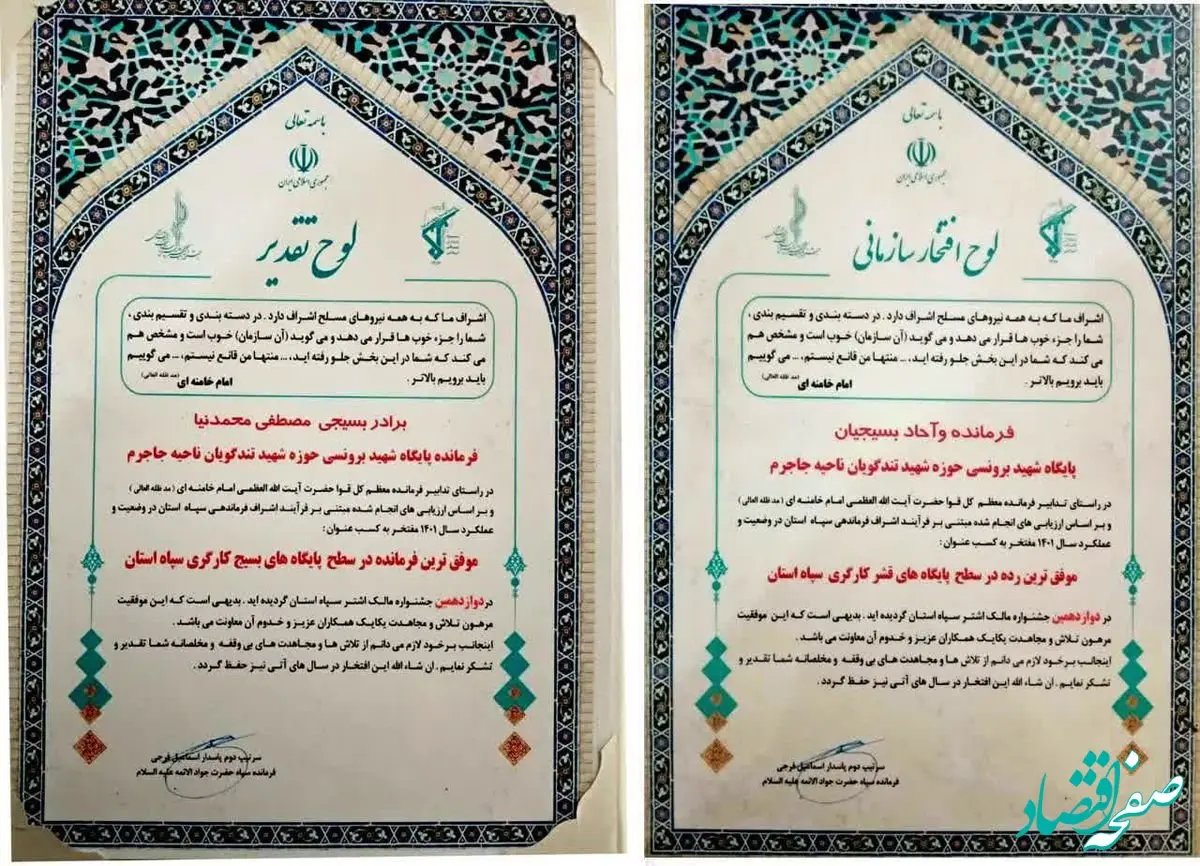 باسمه تعالی
جمهوری اسلامی ایران
لوح تقدیر
اشراف ما که به همه نیروهای مسلح اشراف دارد . در دسته بندی و تقسیم بندی ،
شما را جزء خوب ها قرار می دهد و می گوید (آن سازمان) خوب است و مشخص هم
می کند که شما در این بخش جلو رفته اید، ... منتها من قانع نیستم، ... می گوییم
باید برویم بالاتر .
امام خامنه ای (مد ظله العالی)
برادر بسیجی مصطفی محمدنیا
فرمانده پایگاه شهید برونسی حوزه شهید تندگویان ناحیه جاجرم
در راستای تدابیر فرمانده معظم کل قوا حضرت آیت الله العظمی امام خامنه ای ( مد ظله العالی )
و بر اساس ارزیابی های انجام شده مبتنی بر فرآیند اشراف فرماندهی سپاه استان در وضعیت و
عملکرد سال ۱۴۰۱ مفتخر به کسب عنوان:
موفق ترین فرمانده در سطح پایگاه های بسیج کارگری سپاه استان
در دوازدهمین جشنواره مالک اشتر سپاه استان گردیده اید . بدیهی است که این موفقیت
مرهون تلاش و مجاهدت یکایک همکاران عزیز و خدوم آن معاونت می باشد .
اینجانب برخود لازم می دانم از تلاش ها و مجاهدت های بی وقفه و مخلصانه شما تقدیر و
تشکر نمایم . ان شاء الله این افتخار در سال های آتی نیز حفظ گردد .
سرتیپ دوم پاسدار اسماعیل فرجی
فرمانده سپاه حضرت جواد الائمه علیه السلام
باسمه تعالی
جمهوری اسلامی ایران
لوح افتخار سازمانی
اشراف ما که به همه نیروهای مسلح اشراف دارد . در دسته بندی و تقسیم بندی ،
شما را جزء خوب ها قرار می دهد و می گوید (آن سازمان) خوب است و مشخص هم
می کند که شما در این بخش جلو رفته اید، ... منتها من قانع نیستم، ... می گوییم
باید برویم بالاتر .
امام خامنه ای (مد ظله العالی)
فرمانده وآحاد بسیجیان
پایگاه شهید برونسی حوزه شهید تندگویان ناحیه جاجرم
در راستای تدابیر فرمانده معظم کل قوا حضرت آیت الله العظمی امام خامنه ای ( مد ظله العالی )
و بر اساس ارزیابی های انجام شده مبتنی بر فرآیند اشراف فرماندهی سپاه استان در وضعیت و
عملکرد سال ۱۴۰۱ مفتخر به کسب عنوان:
موفق ترین رده در سطح پایگاه های قشر کارگری سپاه استان
در دوازدهمین جشنواره مالک اشتر سپاه استان گردیده اید . بدیهی است که این موفقیت
مرهون تلاش و مجاهدت یکایک همکاران عزیز و خدوم آن معاونت می باشد .
اینجانب برخود لازم می دانم از تلاش ها و مجاهدت های بی وقفه و مخلصانه شما تقدیر و
تشکر نمایم . ان شاء الله این افتخار در سال های آتی نیز حفظ گردد .
سرتیپ دوم پاسدار اسماعیل فرجی
فرمانده سپاه حضرت جواد الائمه علیه السلام
صفحه اقتصاد